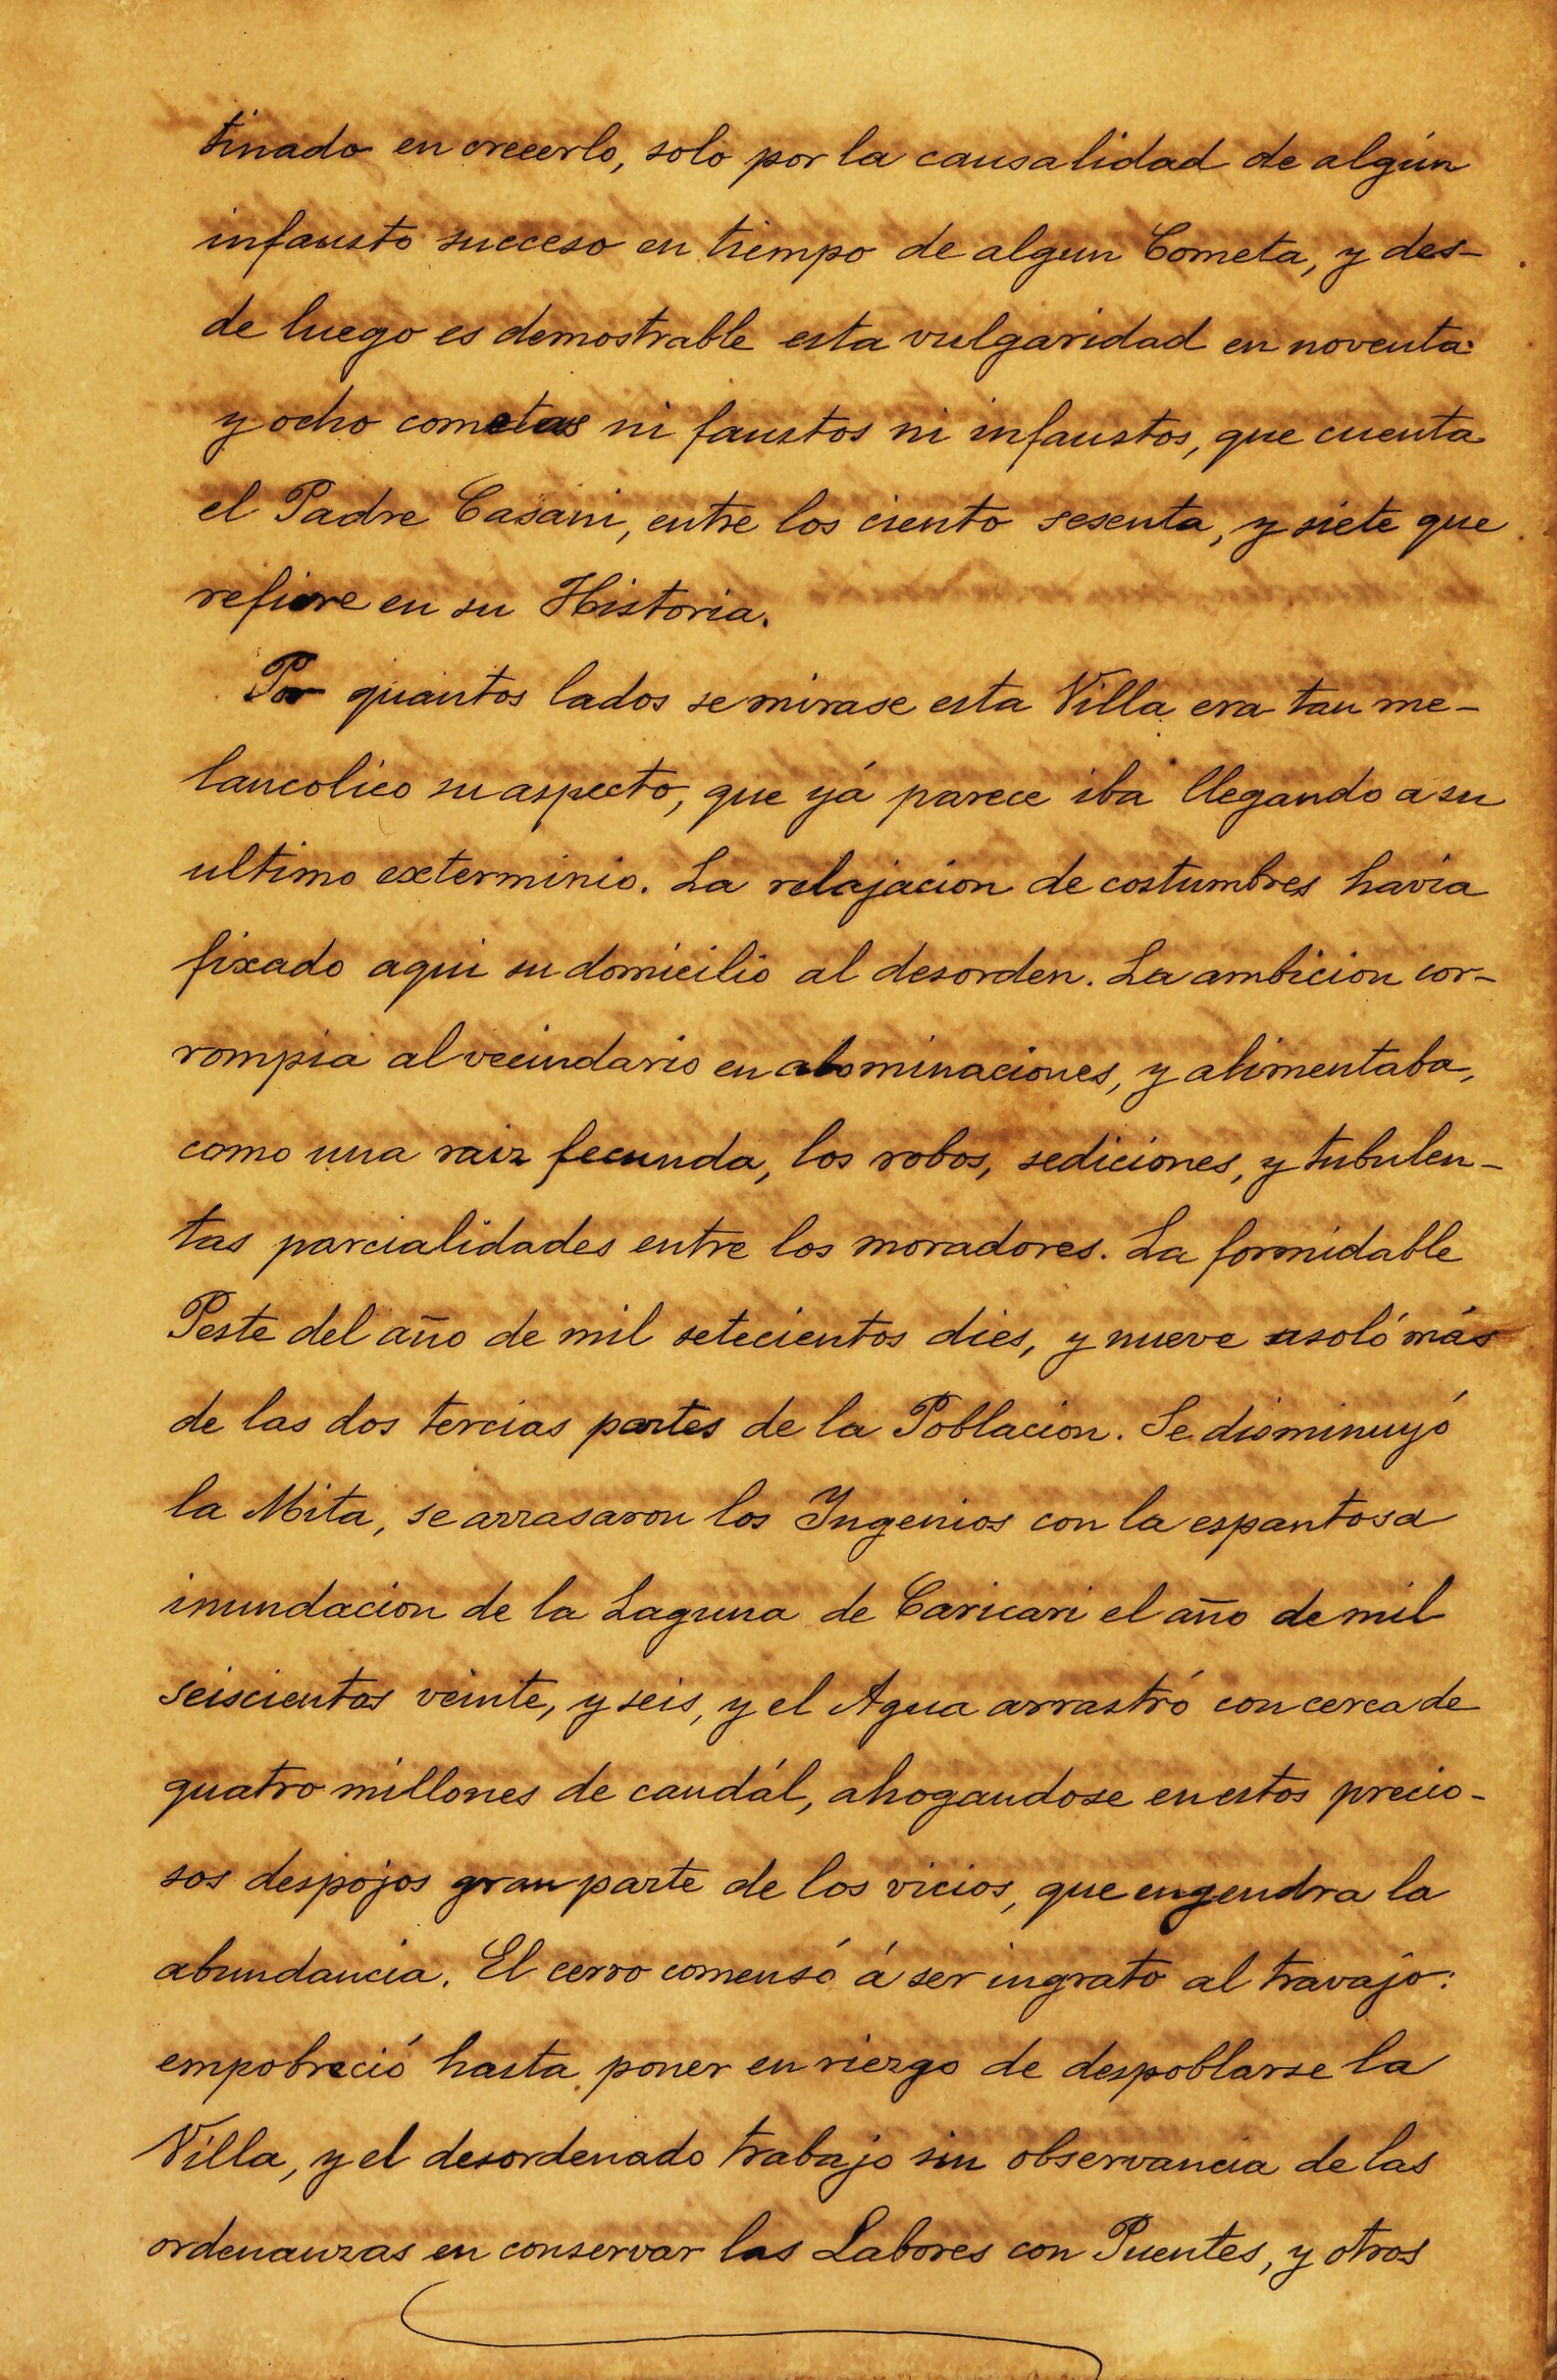 tinado en creeerlo, solo por la causalidad de algún
infausto succeso en tiempo de algun Cometa, y des-
de luego es demostrable esta vulgaridad en noventa
y ocho cometas ni faustos ni infaustos, que cuenta
el Padre Casani, entre los ciento sesenta, y siete que
refiere en su Historia.
Por quantos lados se mirase esta Villa era tan me-
lancolico su aspecto, que yá parece iba llegando a su
ultimo exterminio. La relajacion de costumbres havia
fixado aqui su domicilio al desorden. La ambicion cor-
rompia al vecindario en abominaciones, y alimentaba,
como una raiz fecunda, los robos, sediciones, y tubulen-
tas parcialidades entre los moradores. La formidable
Peste del año de mil setecientos dies, y nueve asoló más
de las dos tercias partes de la Poblacion. Se disminuyó
la Mita, se arrasaron los Ingenios con la espantosa
inundacion de la Laguna de Caricari el año de mil
seiscientos veinte, y seis, y el Agua arrastró con cerca de
quatro millones de caudál, ahogandose en estos precio-
sos despojos gran parte de los vicios, que engendra la
abundancia. El cerro comensó á ser ingrato al travajo:
empobreció hasta poner en riezgo de despoblarse la
Villa, y el desordenado trabajo sin observancia de las
ordenanzas en conservar las Labores con Puentes, y otros